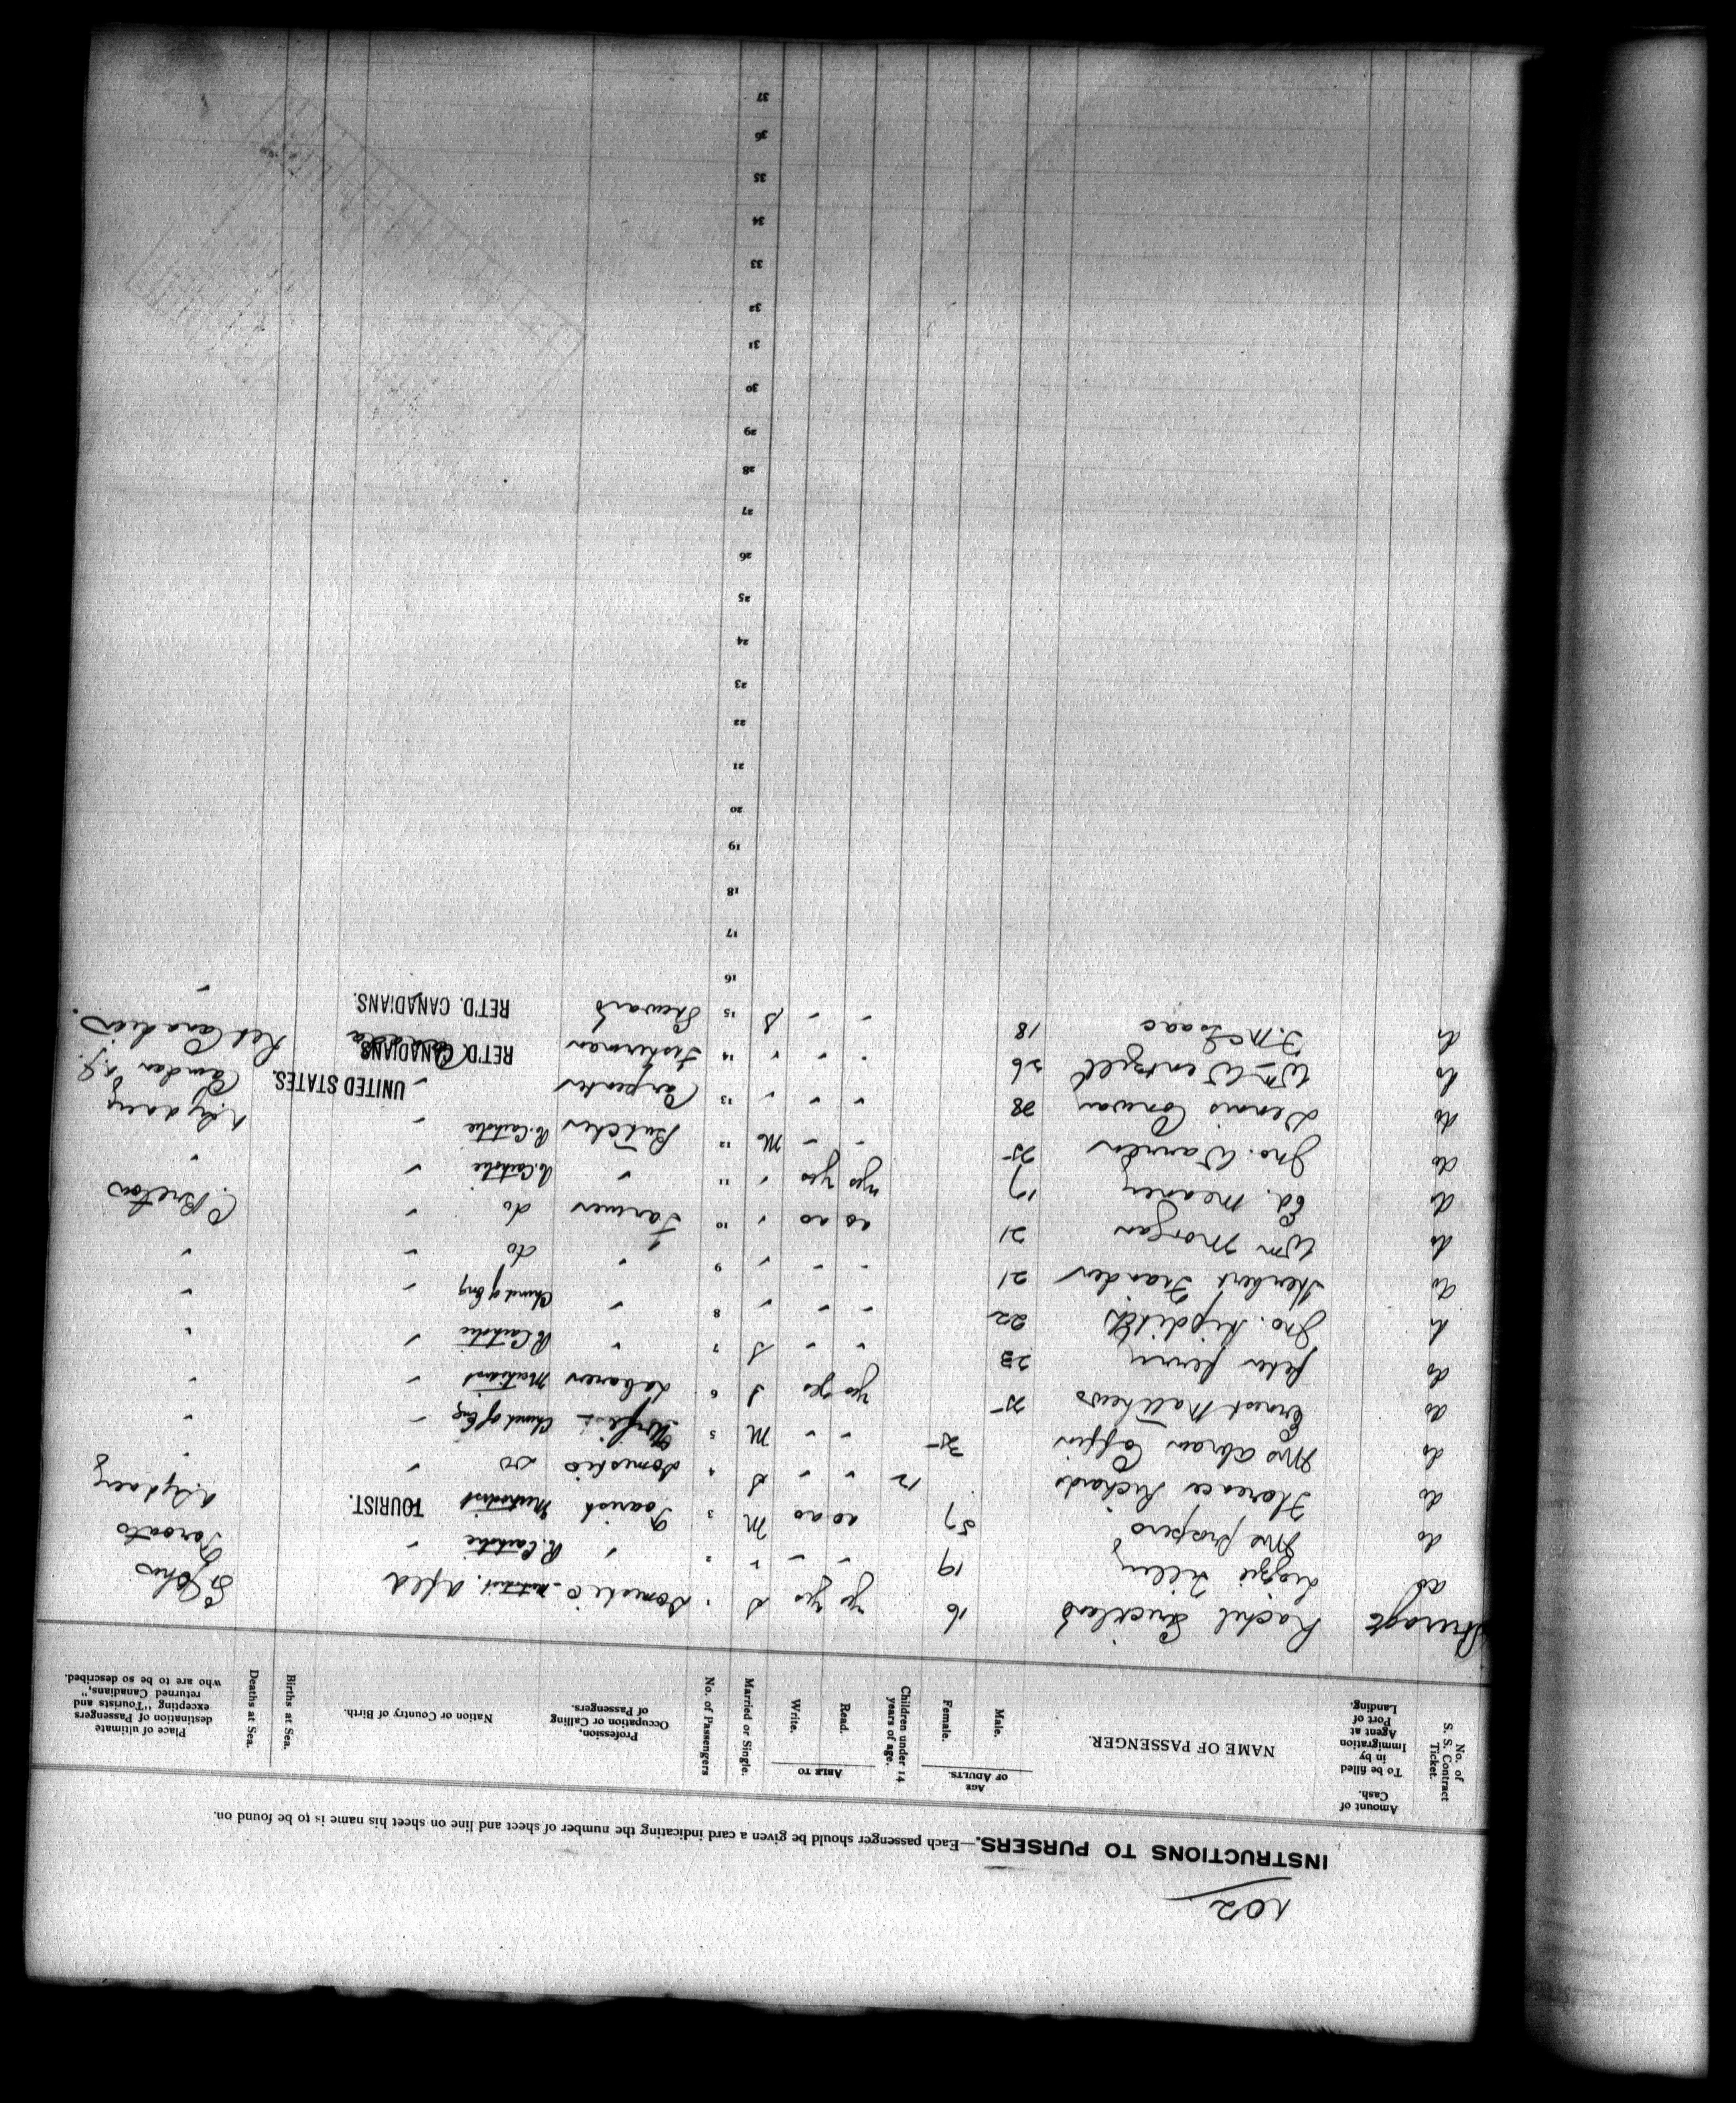 102
INSTRUCTIONS TO PURSERS.—Each passenger should be given a card indicating the number of sheet and line on sheet his name is to be found on.
No. of S. S. Contract Ticket.
Amount of Cash. To be filled in by Immigration Agent at Port of Landing.
NAME OF PASSENGER.
AGE OF ADULTS.
Male.
Female.
Children under 14 years of age.
ABLE TO
Read.
Write.
Married or Single.
No. of Passengers
Profession, Occupation or Calling of Passengers.
Nation or Country of Birth.
Births at Sea.
Deaths at Sea.
Place of ultimate destination of Passengers excepting "Tourists and returned Canadians," who are to be so described.
Steerage Rachel Strickland 16 yes yes S 1 Domestic Methdist. Nfld St Johns
do Lizzie Tilley 19 " " " 2 " R. Catholic " Toronto
do Mrs prospero 57 do do M 3 Tourist Methodist TOURIST. N Sydney
do Florence Richards 12 " " S 4 Domestic do " "
do Mrs Abram Coffin 35 " " M 5 Church of Eng " "
do Ernest Matthews 25 yes yes S 6 Labourer Methodist " "
do Peter 23 " " S 7 " R. Catholic " "
do Jno. 22 " " " 8 " Church of Eng " "
do Herbert 21 " " " 9 " do " "
do Wm Morgan 21 do do " 10 Farmer do " C. Breton
do Ed. Meaney 17 yes yes " 11 " R. Catholic " "
do Jno. Warren 25 " " M 12 Butcher R. Catholic " N Sydney
do Dennis Conway 28 " " " 13 Carpenter UNITED STATES. Camden N.J.
do Wm Wentzell 26 " " " 14 Fisherman RET'D. CANADIANS. Canada Ret Canadian
do J. McIsaac 18 " " S 15 Steward RET'D. CANADIANS. "
16
17
18
19
20
21
22
23
24
25
26
27
28
29
30
31
32
33
34
35
36
37